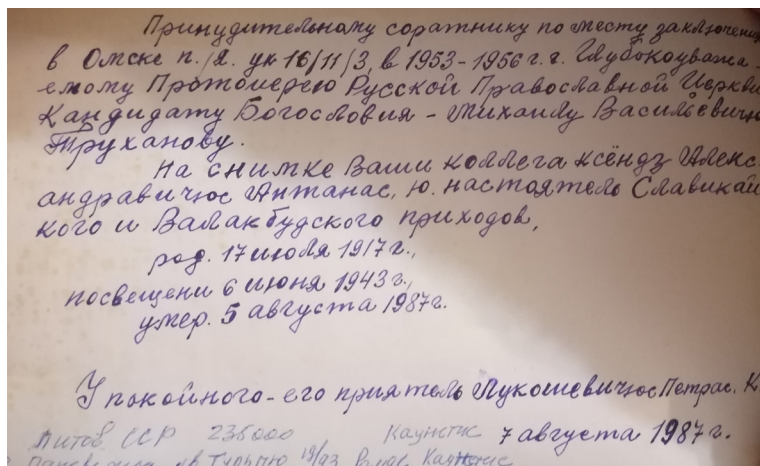 Принудительному соратнику по месту заключения
в Омске п./я. ук 16/11/3, в 1953-1956 г.г. Глубокоуважа-
емому Протоиерею Русской Православной Церкви
Кандидату Богословия - Михаилу Васильевичу
Труханову.
На снимке Ваши коллега ксёндз Алекс
андравичюс Антанас, ю. настоятель Славикай
кого и Валакбудского приходов,
род. 17 июля 1917 г.,
посвещени 6 июня 1943 г.,
умер. 5 августа 1987 г.
У покойного - его приятель Лукошевичюс Петрас. К
Литов ССР 235000 Каунас 7 августа 1987 г.
19/93